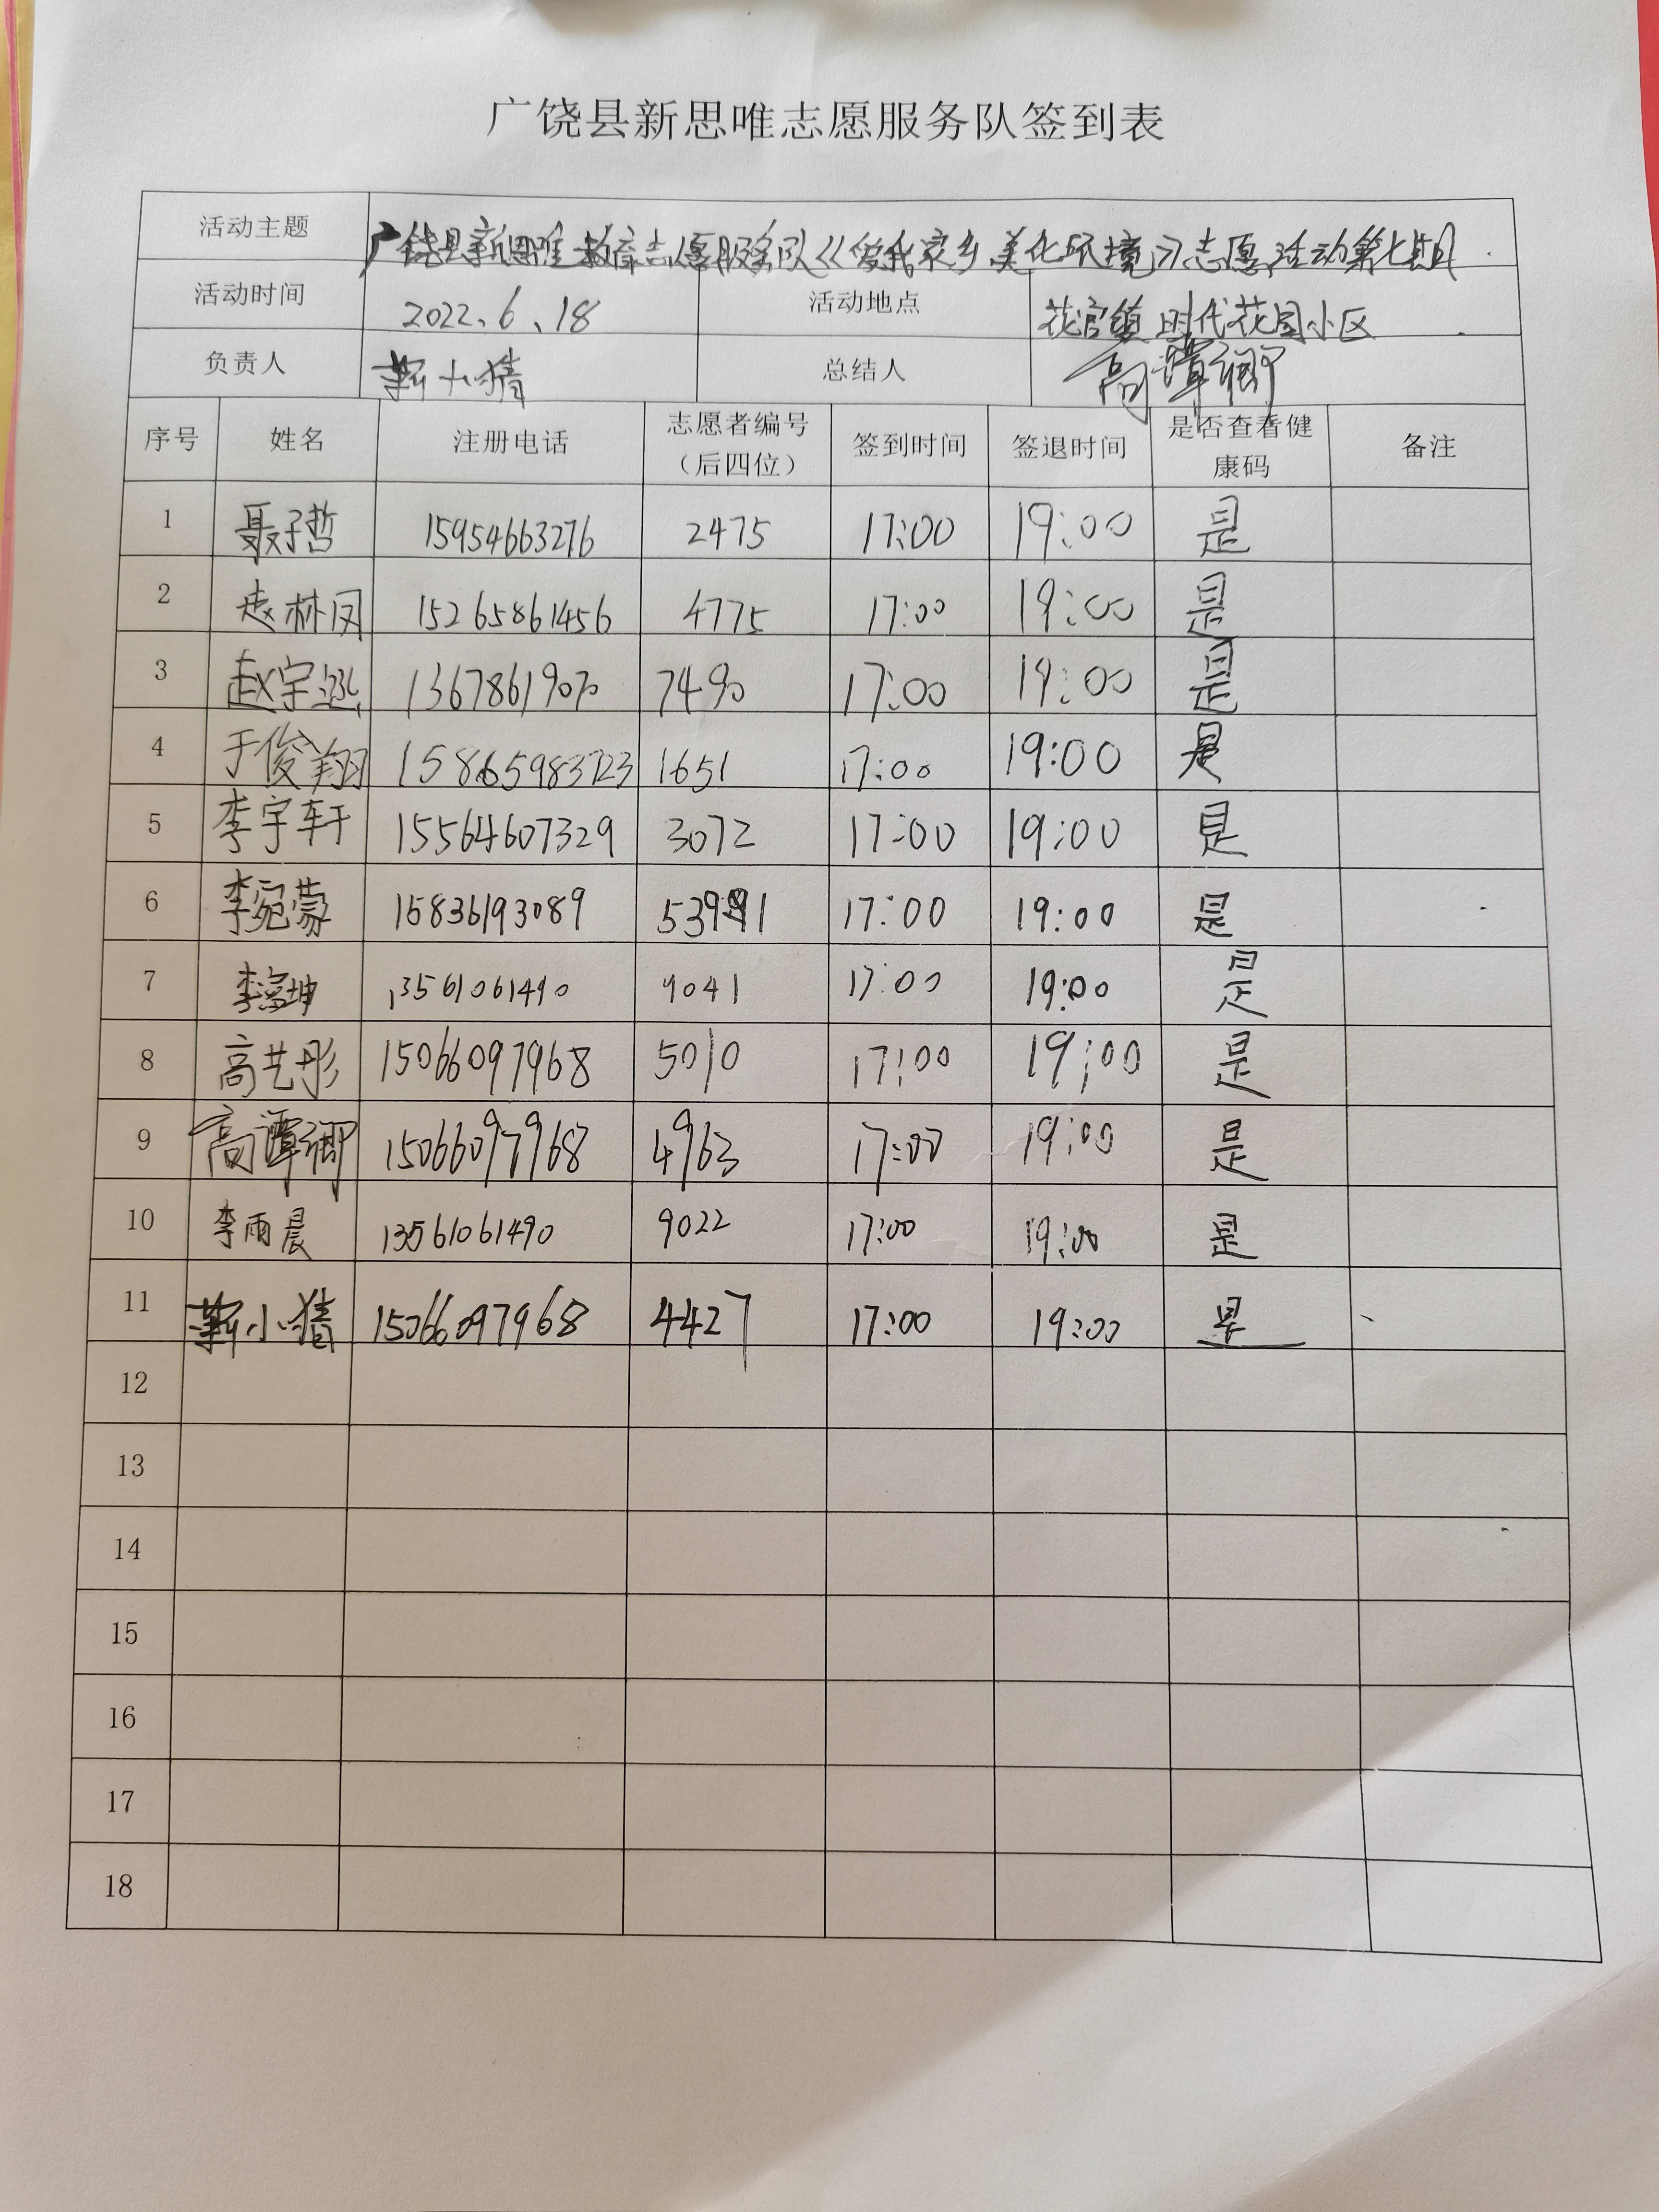 广饶县新思唯志愿服务队签到表
活动主题 广饶县新思唯教育志愿服务队《爱我家乡 美化环境》志愿活动第七期
活动时间 2022.6.18 活动地点 花官镇时代花园小区
负责人 靳小猜 总结人 高谭卿
序号 姓名 注册电话 志愿者编号（后四位） 签到时间 签退时间 是否查看健康码 备注
1 聂子哲 15954663276 2475 17:00 19:00 是
2 赵林凤 15265861456 4775 17:00 19:00 是
3 赵宇涵 13678619070 7490 17:00 19:00 是
4 于俊翔 1651 17:00 19:00 是
5 李宇轩 15564607329 3072 17:00 19:00 是
6 李宛蒙 15836193089 17:00 19:00 是
7 李坤 13561061490 9041 17:00 19:00 是
8 高艺彤 15066097968 5010 17:00 19:00 是
9 高谭卿 15066097968 4963 17:00 19:00 是
10 李雨晨 13561061490 9022 17:00 19:00 是
11 靳小猜 15066097968 4427 17:00 19:00 是
12
13
14
15
16
17
18